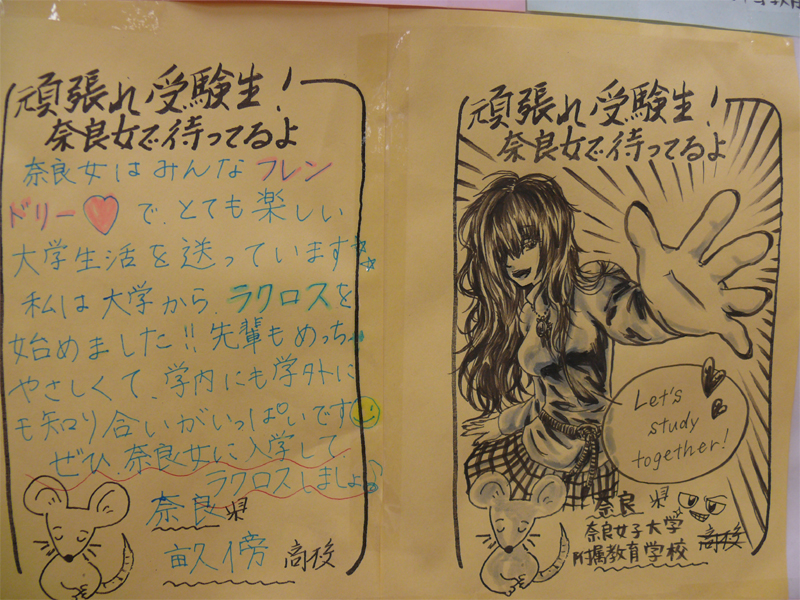 頑張れ受験生!
奈良女で待ってるよ
奈良女はみんなフレン
ドリー♡で、とても楽しい
大学生活を送っています☆☆
私は大学から、ラクロスを
始めました!!先輩もめっちゃ
やさしくて、学内にも学外に
も知り合いがいっぱいです
ぜひ、奈良女に入学して、
ラクロスしましょう♪
奈良県
畝傍 高校
頑張れ受験生!
奈良女で待ってるよ
Let's
study
together!
奈良県
奈良女子大学
附属教育学校 高校